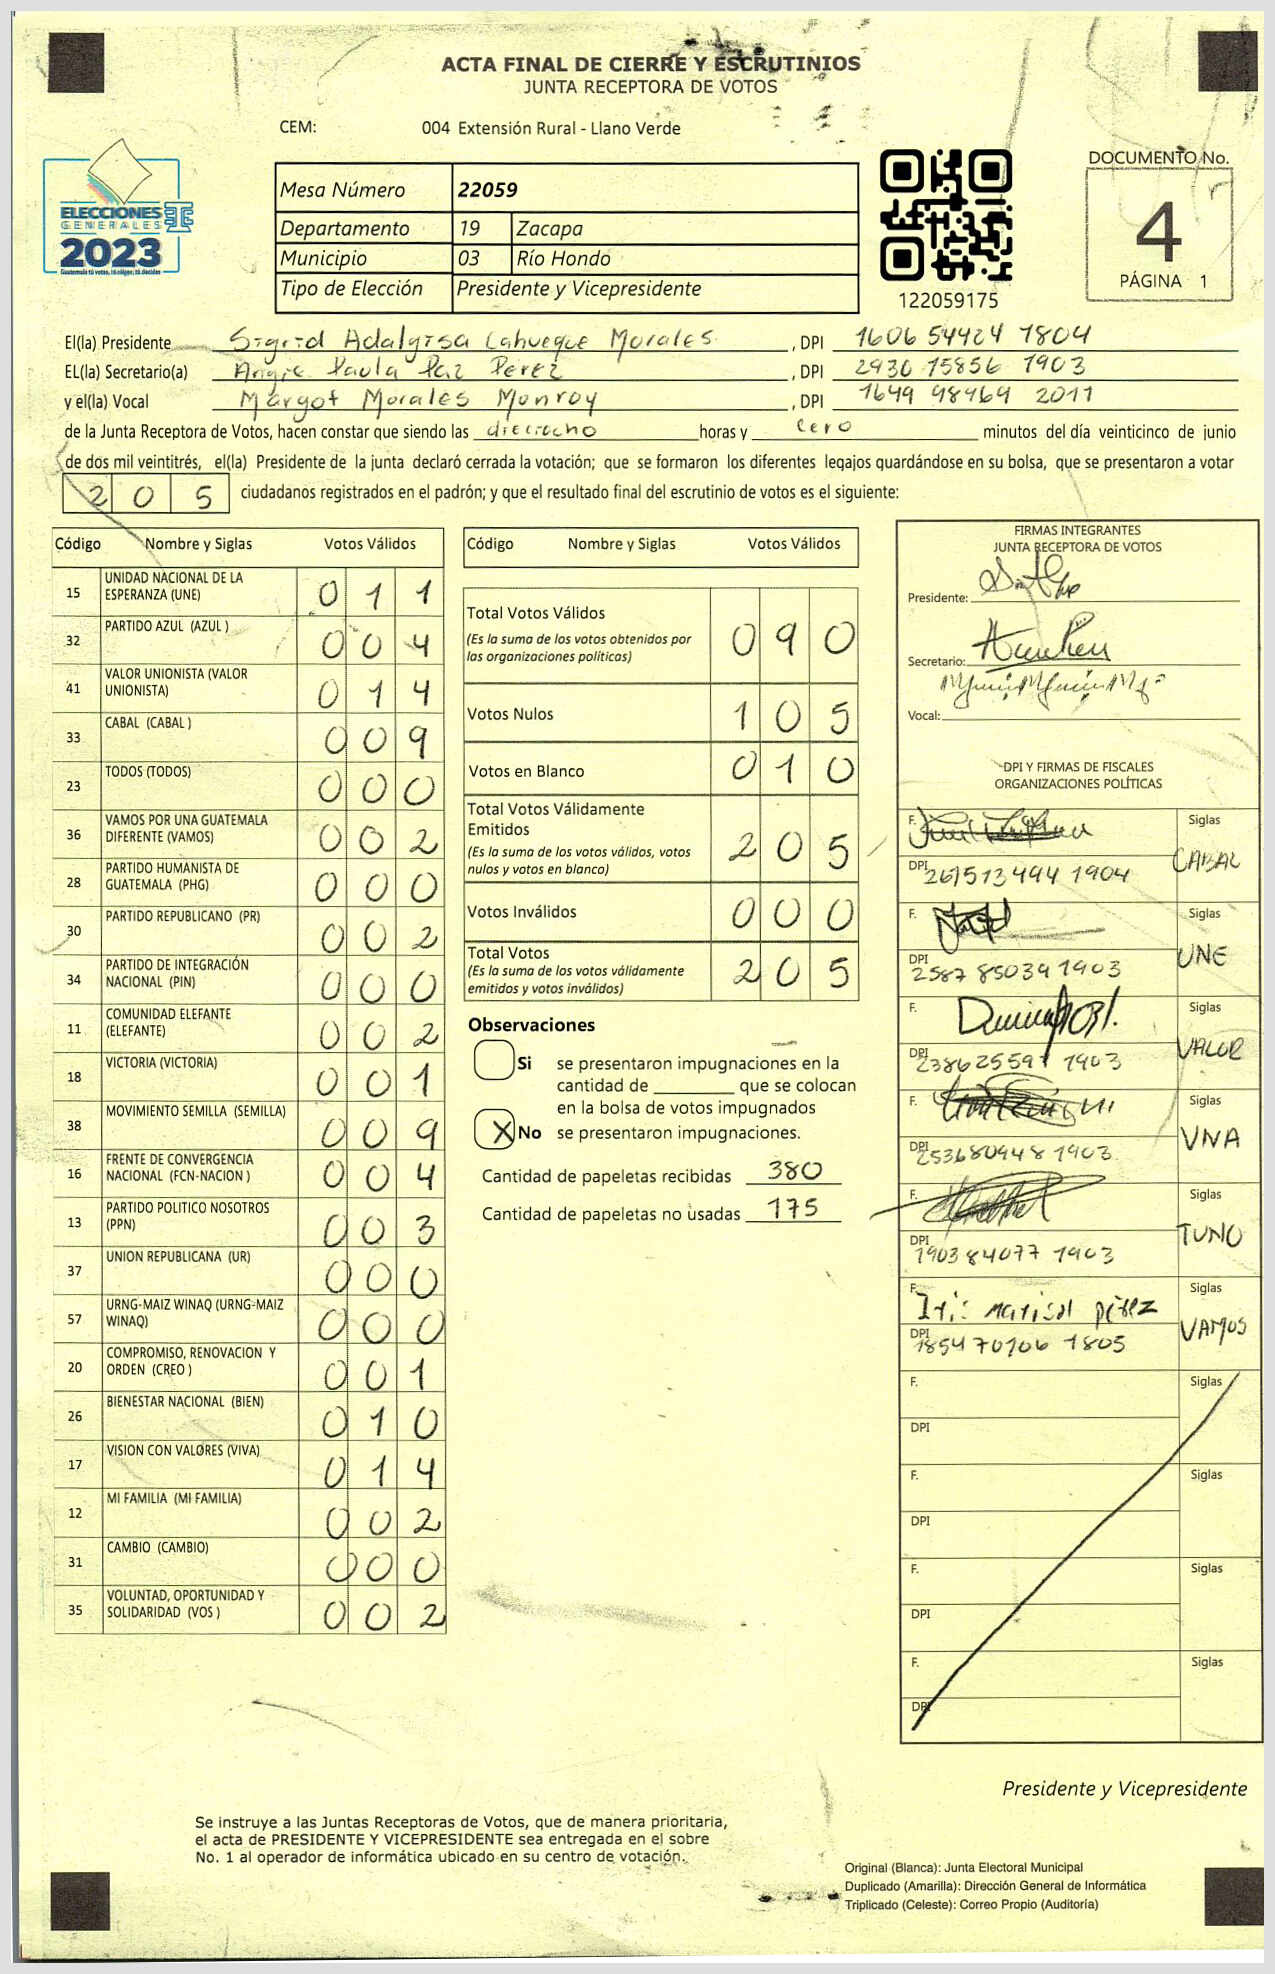 ACTA FINAL DE CIERRE Y ESCRUTINIOS
JUNTA RECEPTORA DE VOTOS
CEM: 004 Extensión Rural - Llano Verde
ELECCIONES
GENERALES
2023
Guatemala tú votas, tú eliges, tú decides
Mesa Número 22059
Departamento 19 Zacapa
Municipio 03 Río Hondo
Tipo de Elección Presidente y Vicepresidente
122059175
DOCUMENTO No.
4
PÁGINA 1
El(la) Presidente Sigrid Adalgisa Cahueque Morales, DPI 1606 54424 1804
EL(la) Secretario(a) Angie Paola Paz Perez, DPI 2930 75856 1903
y el(la) Vocal Margot Morales Monroy, DPI 1649 98469 2011
de la Junta Receptora de Votos, hacen constar que siendo las dieciocho horas y cero minutos del día veinticinco de junio
de dos mil veintitrés, el(la) Presidente de la junta declaró cerrada la votación; que se formaron los diferentes legajos guardándose en su bolsa, que se presentaron a votar
205 ciudadanos registrados en el padrón; y que el resultado final del escrutinio de votos es el siguiente:
Código Nombre y Siglas Votos Válidos
15 UNIDAD NACIONAL DE LA ESPERANZA (UNE) 011
32 PARTIDO AZUL (AZUL ) 004
41 VALOR UNIONISTA (VALOR UNIONISTA) 014
33 CABAL (CABAL ) 009
23 TODOS (TODOS) 000
36 VAMOS POR UNA GUATEMALA DIFERENTE (VAMOS) 002
28 PARTIDO HUMANISTA DE GUATEMALA (PHG) 000
30 PARTIDO REPUBLICANO (PR) 002
34 PARTIDO DE INTEGRACIÓN NACIONAL (PIN) 000
11 COMUNIDAD ELEFANTE (ELEFANTE) 002
18 VICTORIA (VICTORIA) 001
38 MOVIMIENTO SEMILLA (SEMILLA) 009
16 FRENTE DE CONVERGENCIA NACIONAL (FCN-NACION ) 004
13 PARTIDO POLITICO NOSOTROS (PPN) 003
37 UNION REPUBLICANA (UR) 000
57 URNG-MAIZ WINAQ (URNG-MAIZ WINAQ) 000
20 COMPROMISO, RENOVACION Y ORDEN (CREO ) 001
26 BIENESTAR NACIONAL (BIEN) 010
17 VISION CON VALORES (VIVA) 014
12 MI FAMILIA (MI FAMILIA) 002
31 CAMBIO (CAMBIO) 000
35 VOLUNTAD, OPORTUNIDAD Y SOLIDARIDAD (VOS ) 002
Código Nombre y Siglas Votos Válidos
Total Votos Válidos 090
(Es la suma de los votos obtenidos por
las organizaciones políticas)
Votos Nulos 105
Votos en Blanco 010
Total Votos Válidamente
Emitidos 205
(Es la suma de los votos válidos, votos
nulos y votos en blanco)
Votos Inválidos 000
Total Votos 205
(Es la suma de los votos válidamente
emitidos y votos inválidos)
Observaciones
Si se presentaron impugnaciones en la
cantidad de ________ que se colocan
en la bolsa de votos impugnados
X No se presentaron impugnaciones.
Cantidad de papeletas recibidas 380
Cantidad de papeletas no usadas 175
FIRMAS INTEGRANTES
JUNTA RECEPTORA DE VOTOS
Presidente:
Secretario:
Vocal:
DPI Y FIRMAS DE FISCALES
ORGANIZACIONES POLÍTICAS
F. Siglas CABAL
DPI 2675 13494 1904
F. Siglas UNE
DPI 2587 85039 1903
F. Siglas VALOR
DPI 2386 25597 1903
F. Siglas VIVA
DPI 2536 80948 1903
F. Siglas TUNO
DPI 1903 84077 1903
F. Iris Marisol Pérez Siglas VAMOS
DPI 1854 70706 1805
F. Siglas
DPI
F. Siglas
DPI
F. Siglas
DPI
F. Siglas
DPI
Presidente y Vicepresidente
Se instruye a las Juntas Receptoras de Votos, que de manera prioritaria,
el acta de PRESIDENTE Y VICEPRESIDENTE sea entregada en el sobre
No. 1 al operador de informática ubicado en su centro de votación.
Original (Blanca): Junta Electoral Municipal
Duplicado (Amarilla): Dirección General de Informática
Triplicado (Celeste): Correo Propio (Auditoría)